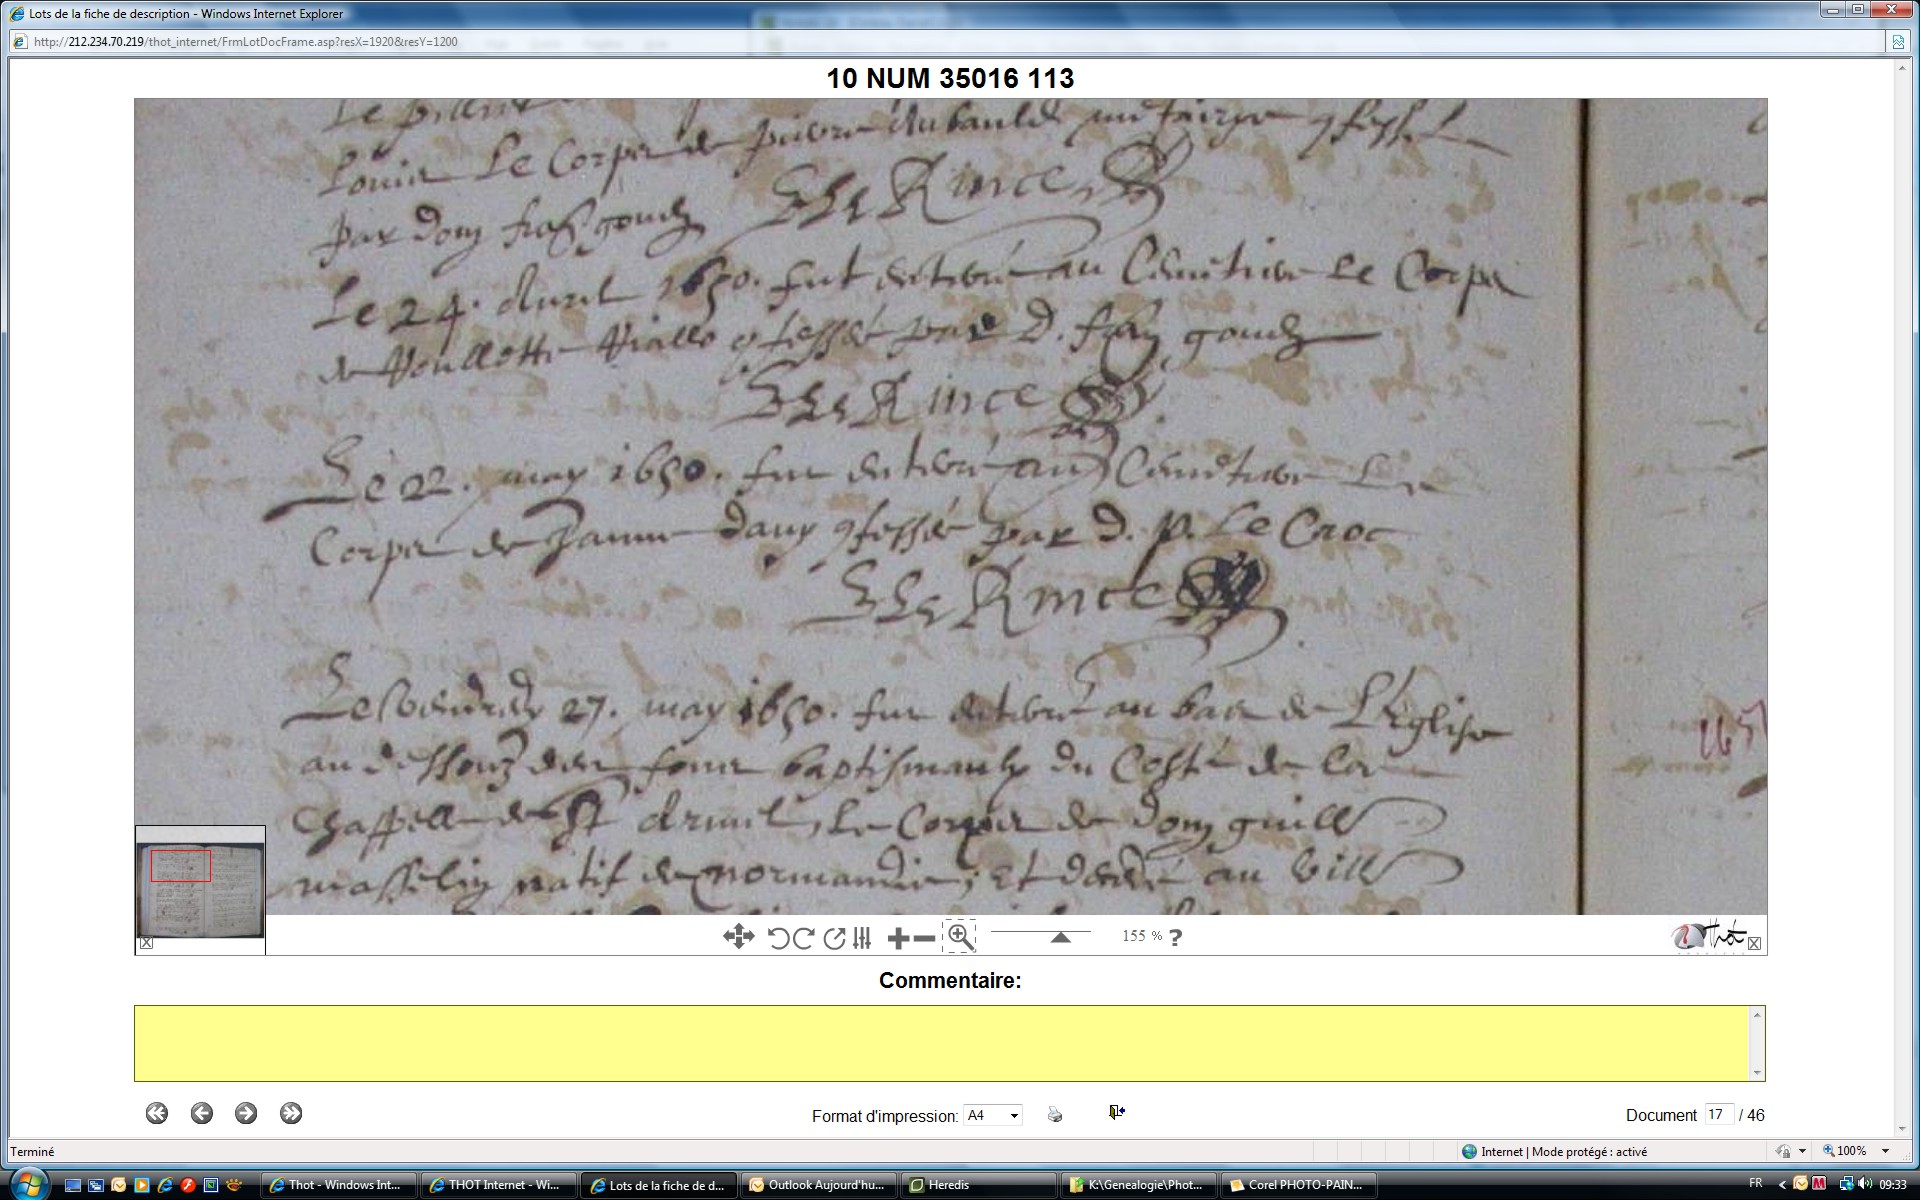 Lots de la fiche de description - Windows Internet Explorer
http://212.234.70.219/thot_internet/FrmLotDocFrame.asp?resX=1920&resY=1200
10 NUM 35016 113
Le Corps de pierre
par dom gouch
Le Rince
Le 24. Auril 1650. fut enterré au Cimetiere le Corps
de par d. gouch
Le Rince
Le 22. may 1650. fut enterré au Cimetiere Le
Corps de Janne dauy 9fessée par d. p. Le Croc
Le Rince
Le Vendredy 27. may 1650. fut enterré au bas de L'Eglise
au dessouz des fons baptismaulx du Costé de la
Chappelle de St Le Corps de dom guill
masselin natif de normandie, Et au vill
1651
155 % ?
Thot
Commentaire:
Format d'impression: A4
Document 17 / 46
Terminé
Internet | Mode protégé : activé
100%
Thot - Windows Int...
THOT Internet - Wi...
Lots de la fiche de d...
Outlook Aujourd'hu...
Heredis
K:\Genealogie\Phot...
Corel PHOTO-PAIN...
FR
09:33